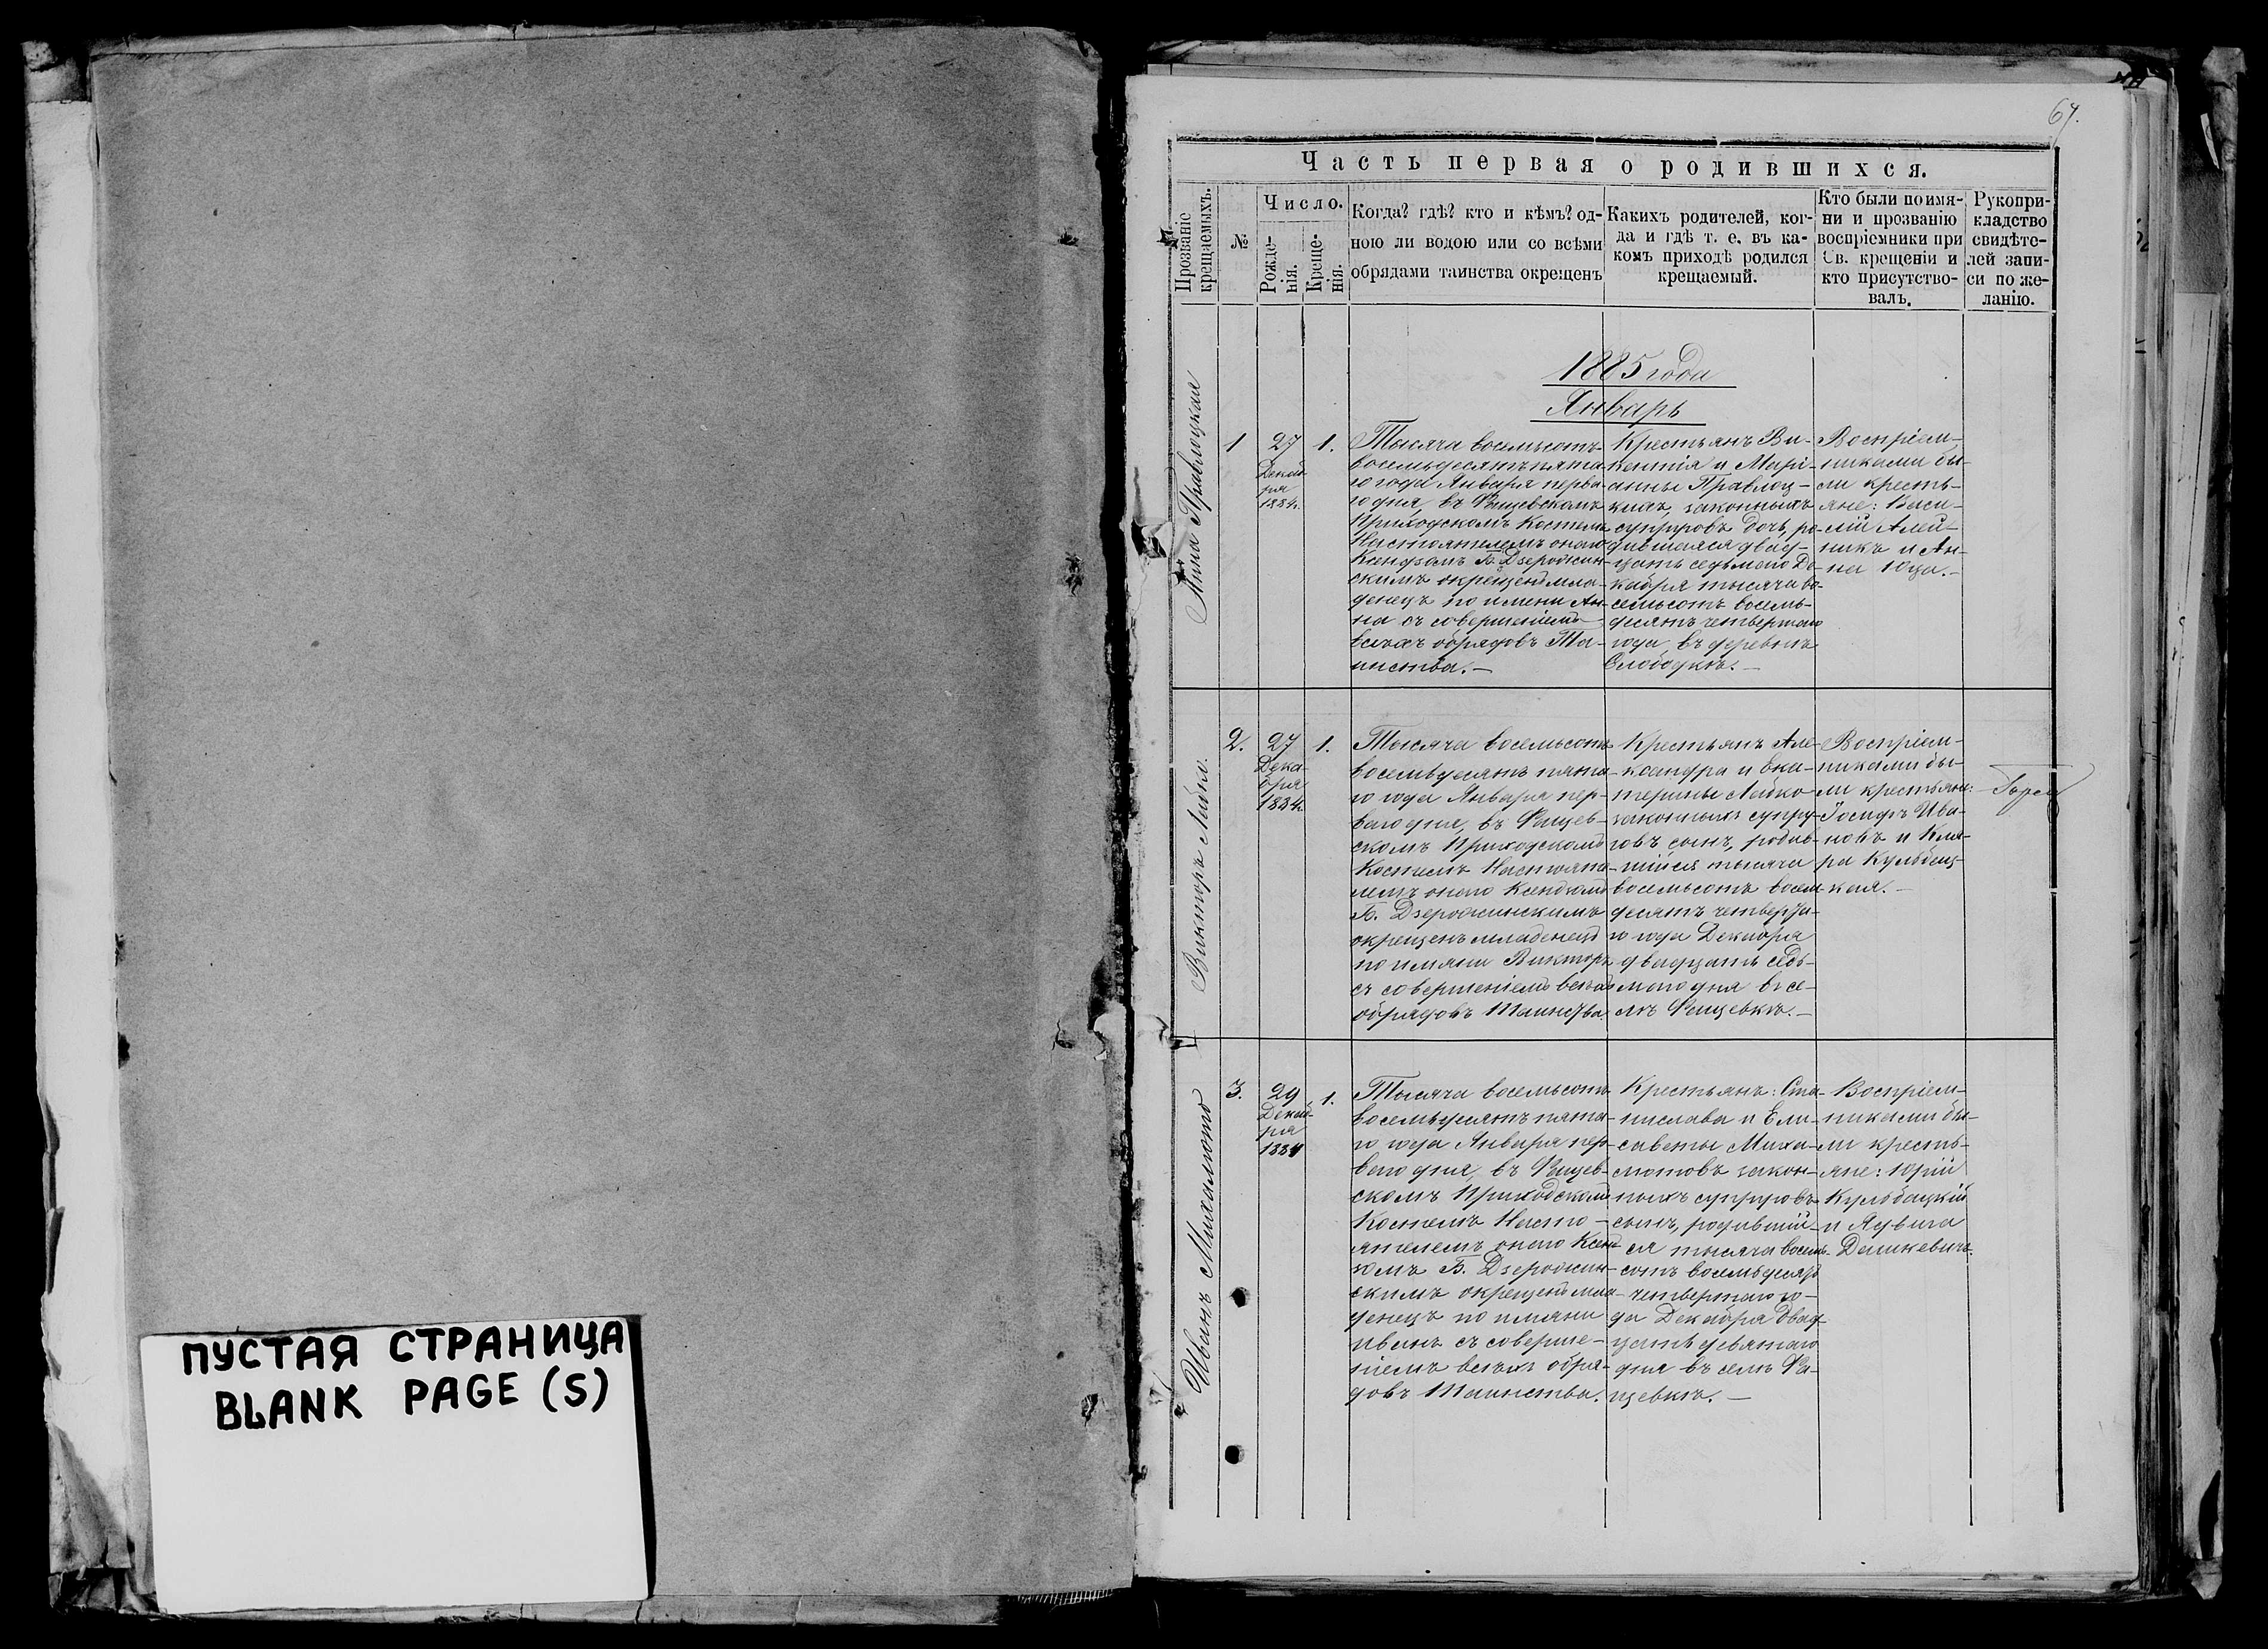 ПУСТАЯ СТРАНИЦА
BLANK PAGE (S)
67.
Часть первая о родившихся.
Прозваніе
крещаемыхъ.
№
Число.
Рожде-
нія.
Креще-
нія.
Когда? гдѣ? кто и кѣмъ? од-
ною ли водою или со всѣми
обрядами таинства окрещенъ
Какихъ родителей, ког-
да и гдѣ т. е. въ ка-
комъ приходѣ родился
крещаемый.
Кто были по имя-
ни и прозванію
воспріемники при
Св. крещеніи и
кто присутство-
валъ.
Рукопри-
кладство
свидѣте-
лей запи-
си по же-
ланію.
1885 года
Январь
Анна Правлоцкая
1
27
Декаб-
ря
1884.
1.
Тысяча восемьсотъ
восемьдесятъ пята-
го года Января перва-
го дня, въ Фащевскомъ
Приходскомъ Костелѣ
Настоятелемъ онаго
Ксендзомъ Б. Дзеражин-
скимъ окрещенъ мла-
денецъ по имени Ан-
на съ совершеніемъ
всѣхъ обрядовъ Та-
инства.—
Крестьянъ Ви-
кентія и Марі-
анны Правлоц-
кихъ, законныхъ
супруговъ дочь, ро-
дившаяся двад-
цать седьмаго Де-
кабря тысяча во-
семьсотъ восемь-
десятъ четвертаго
года, въ деревнѣ
Слободкѣ.—
Воспріем-
никами бы-
ли кресть-
яне: Васи-
лій Алей-
никъ и Ан-
на Юца.—
Викторъ Лайко.
2.
27
Дека-
бря
1884.
1.
Тысяча восемьсотъ
восемьдесятъ пята-
го года Января пер-
ваго дня, въ Фащев-
скомъ Приходскомъ
Костелѣ Настояте-
лемъ онаго Ксендзомъ
Б. Дзеражинскимъ
окрещенъ младенецъ
по имяни Викторъ
съ совершеніемъ всѣхъ
обрядовъ Таинства
Крестьянъ Але-
ксандра и Ека-
терины Лайко
законныхъ супру-
говъ сынъ, родив-
шійся тысяча
восемьсотъ восемь-
десятъ четверта-
го года Декабря
двадцать седь-
маго дня въ се-
лѣ Фащевкѣ.—
Воспріем-
никами бы-
ли крестьяне:
Іосифъ Ива-
новъ и Кля-
ра Кульбиц-
кая.—
Иванъ Михалютъ
3.
29
Декаб-
ря
1884
1.
Тысяча восемьсотъ
восемьдесятъ пята-
го года Января пер-
ваго дня, въ Фащев-
скомъ Приходскомъ
Костелѣ Насто-
ятелемъ онаго Ксен-
зомъ Б. Дзеражин-
скимъ окрещенъ мла-
денецъ по имяни
Иванъ съ соверше-
ніемъ всѣхъ обря-
довъ Таинства.
Крестьянъ: Ста-
нислава и Ели-
саветы Миха-
лютовъ закон-
ныхъ супруговъ
сынъ, родившій-
ся тысяча восемь-
сотъ восемьдесятъ
четвертаго го-
да Декабря двад-
цать девятаго
дня въ селѣ Фа-
щевкѣ.—
Воспріем-
никами бы-
ли кресть-
яне: Юрій
Кулбацкій
и Ядвига
Дашкевичъ.